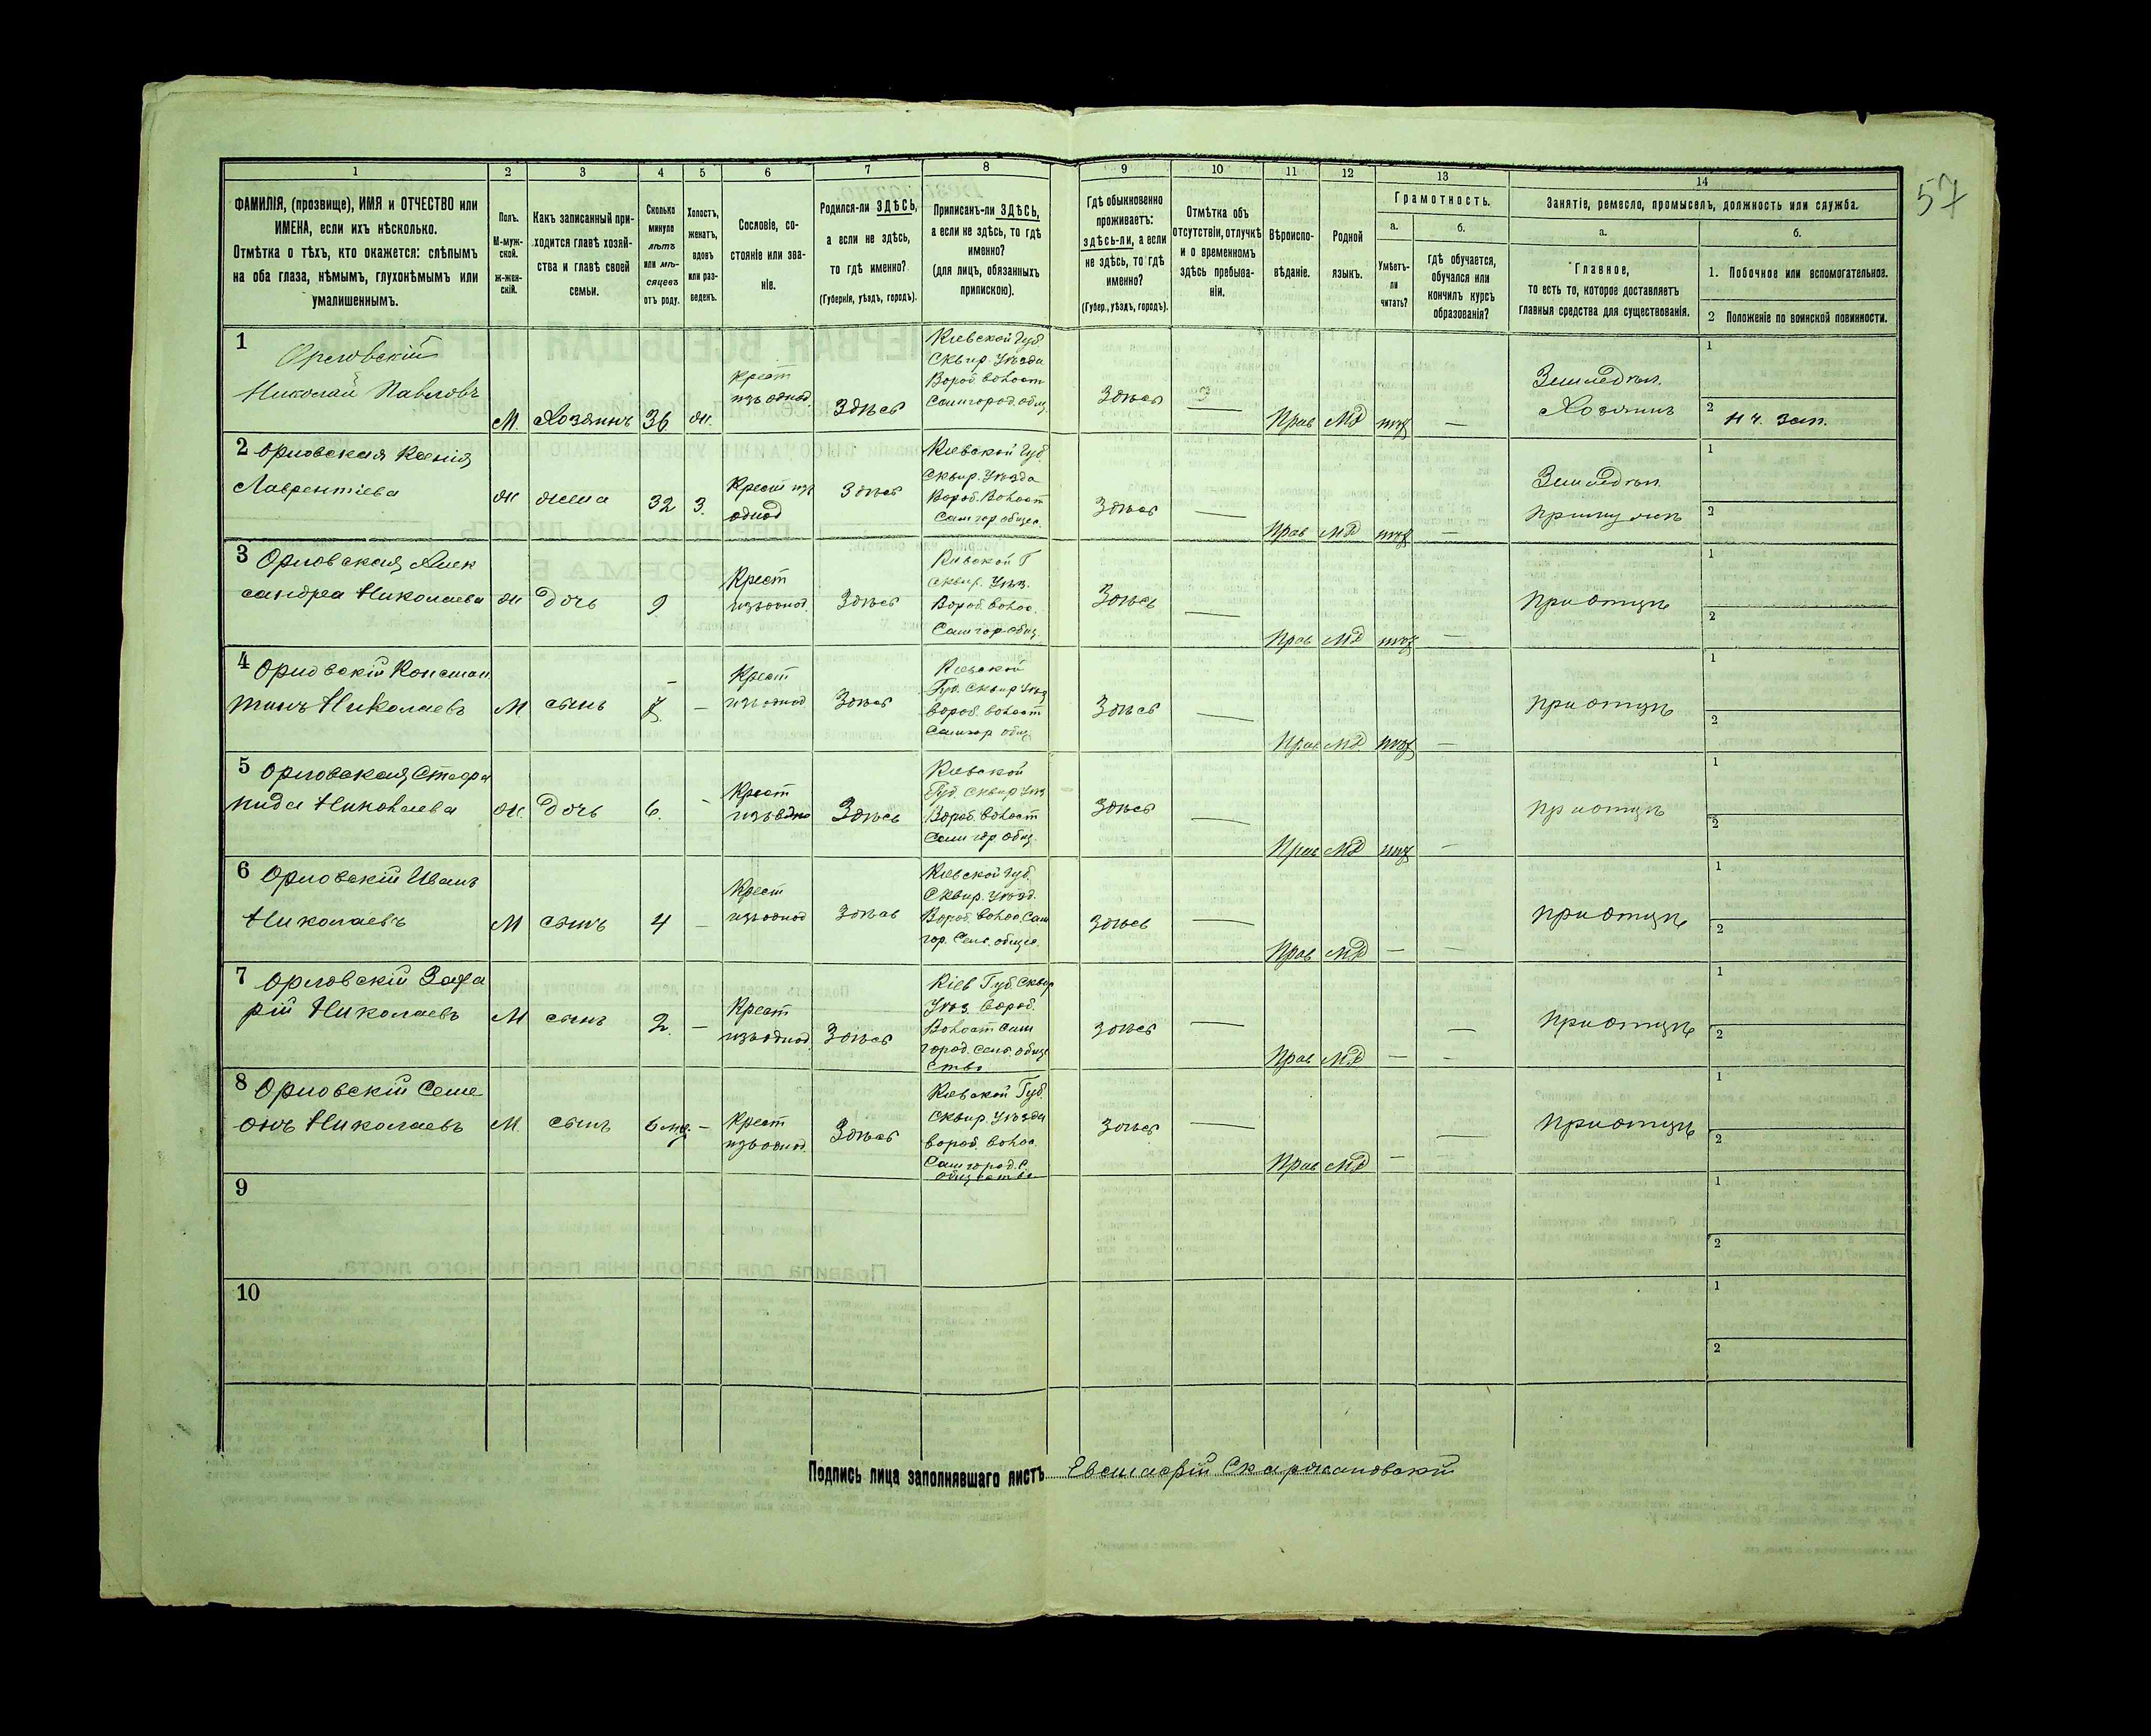 57
1 2 3 4 5 6 7 8 9 10 11 12 13 14
ФАМИЛІЯ, (прозвище), ИМЯ и ОТЧЕСТВО или
ИМЕНА, если ихъ нѣсколько.
Отмѣтка о тѣхъ, кто окажется: слѣпымъ
на оба глаза, нѣмымъ, глухонѣмымъ или
умалишеннымъ.
Полъ.
М-муж-
ской.
ж-жен-
скій.
Какъ записанный при-
ходится главѣ хозяй-
ства и главѣ своей
семьи.
Сколько
минуло
лѣтъ
или мѣ-
сяцевъ
отъ роду.
Холостъ,
женатъ,
вдовъ
или раз-
веденъ.
Сословіе, со-
стояніе или зва-
ніе.
Родился-ли ЗДѢСЬ,
а если не здѣсь,
то гдѣ именно?
(Губернія, уѣздъ, городъ).
Приписанъ-ли ЗДѢСЬ,
а если не здѣсь, то гдѣ
именно?
(для лицъ, обязанныхъ
припискою).
Гдѣ обыкновенно
проживаетъ:
здѣсь-ли, а если
не здѣсь, то гдѣ
именно?
(Губер., уѣздъ, городъ).
Отмѣтка объ
отсутствіи, отлучкѣ
и о временномъ
здѣсь пребыва-
ніи.
Вѣроиспо-
вѣданіе.
Родной
языкъ.
Грамотность.
а.
Умѣетъ-
ли
читать?
б.
гдѣ обучается,
обучался или
кончилъ курсъ
образованія?
Занятіе, ремесло, промыселъ, должность или служба.
а.
Главное,
то есть то, которое доставляетъ
главныя средства для существованія.
б.
1. Побочное или вспомогательное.
2 Положеніе по воинской повинности.
1
Орловскій
Николай Павловъ
М. Хозяинъ 36 ж.
Крест
изъ однод.
Здѣсь
Кіевской Губ.
Сквир. Уѣзда
Вороб. Волост
Самгород. общ.
Здѣсь
Прав МР
—
Земледѣл.
Хозяинъ
1
2
Н ч. зап.
2 Орловская Ксенія
Лаврентіева
ж жена 32 З.
Крест изъ
однод
Здѣсь
Кіевской Губ.
Сквир. Уѣзда
Вороб. Волост
Самгор общес.
Здѣсь —
Прав МР
—
Земледѣл.
при мужѣ
1
2
3 Орловская Алек
сандра Николаева
ж дочь 9
Крест
изъ однод.
Здѣсь
Кіевской Г
Сквир. Уѣз.
Вороб. Волос.
Самгор общ.
Здѣсь —
Прав МР
—
При отцѣ
1
2
4 Орловскій Констан
тинъ Николаевъ
М. сынъ —
Крест
изъ однод
Здѣсь
Кіевской
Губ. Сквир Уѣз
Вороб. Волост
Самгор общ.
Здѣсь —
Прав МР.
—
При отцѣ
1
2
5 Орловская Стефа
нида Николаева
ж. дочь 6. -
Крест
изъ одно
Здѣсь
Кіевской
Губ. Сквир Уѣз
Вороб. Волост
Самгор. общ.
Здѣсь —
Прав МР
-
При отцѣ
1
2
6 Орловскій Иванъ
Николаевъ
М сынъ 4 -
Крест
изъ однод
Здѣсь
Кіевской Губ.
Сквир. Уѣзд.
Вороб. Волос. Сам
гор. Сель. общес.
Здѣсь —
Прав МР — —
При отцѣ
1
2
7 Орловскій Заха
рій Николаевъ
М сынъ 2. —
Крест
изъ однод.
Здѣсь
Кіев Губ. Сквир
Уѣз. Вороб.
Волост Сам
город. Сель. обще
ство
Здѣсь —
Прав МР — —
При отцѣ
1
2
8 Орловскій Семе
онъ Николаевъ
М. сынъ —
Крест
изъ однод.
Здѣсь
Кіевской Губ.
Сквир. Уѣзда
Вороб. Волос.
Самгород. С.
общество
Здѣсь —
Прав МР — —
При отцѣ
1
2
9
1
2
10
1
2
Подпись лица заполнявшаго листъ Скаржановскій